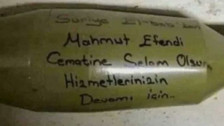 Suriye El-Bab
Mahmut Efendi
Cematine Selam Olsun
Hizmetlerinizin
Devamı için..